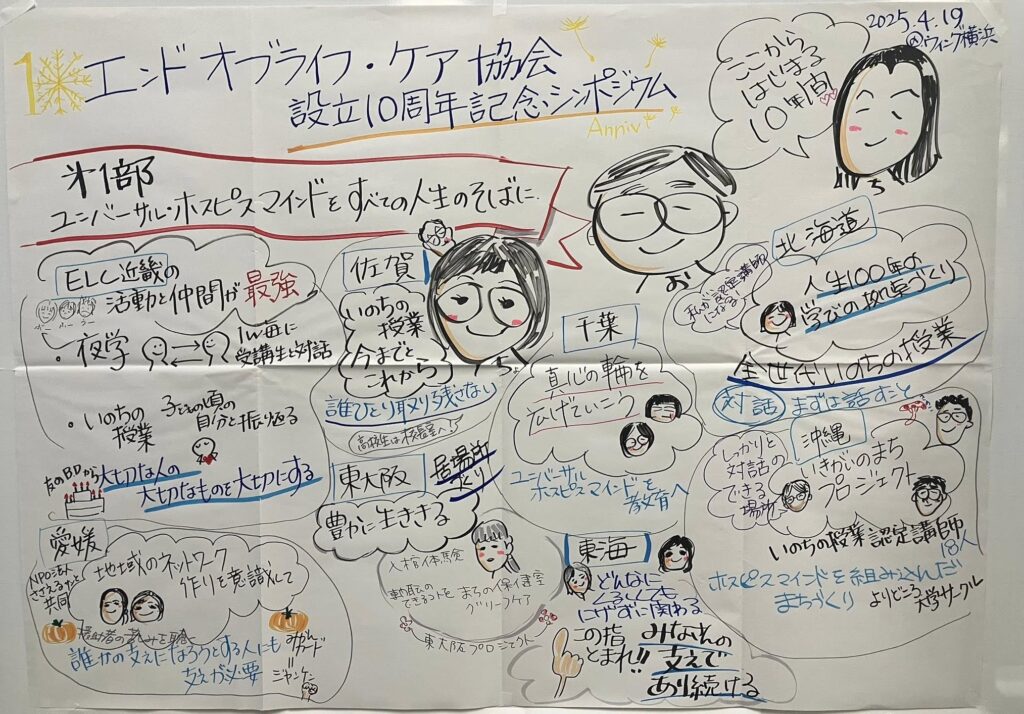 2025.4.19
@ウィング横浜
10 エンドオブライフ・ケア協会
設立10周年記念シンポジウム
Anniv
ここから
はじまる
10年間
第1部
ユニバーサル・ホスピスマインドをすべての人生のそばに
お
ち
ELC近畿の
活動と仲間が最強
・夜学
1w毎に
受講生と対話
・いのちの
授業
子どもの頃の
自分と振り返る
友のBDから
大切な人の
大切なものを大切にする
愛媛
NPO法人
共同
地域のネットワーク
作りを意識して
誰かの支えになろうとする人にも
支えが必要
みかん
カード
ジャンケン
佐賀
いのちの
授業
今までと
これから
誰ひとり取り残さない
東大阪
居場所
作り
豊かに生ききる
入棺体験
まちの保健室
グリーフケア
東大阪プロジェクト
千葉
真心の輪を
広げていこう
ユニバーサル
ホスピスマインドを
教育へ
東海
どんなに
くるしくても
にげずに関わる
この指
とまれ!!
みなさんの
支えで
あり続ける
北海道
私が認定講師
になる
人生100年の
学びの場づくり
全世代いのちの授業
対話 まずは話すこと
沖縄
しっかりと
対話の
できる
場所
いきがいのまち
プロジェクト
いのちの授業認定講師
18人
ホスピスマインドを組み込んだ
まちづくり
よりどころ
大学サークル